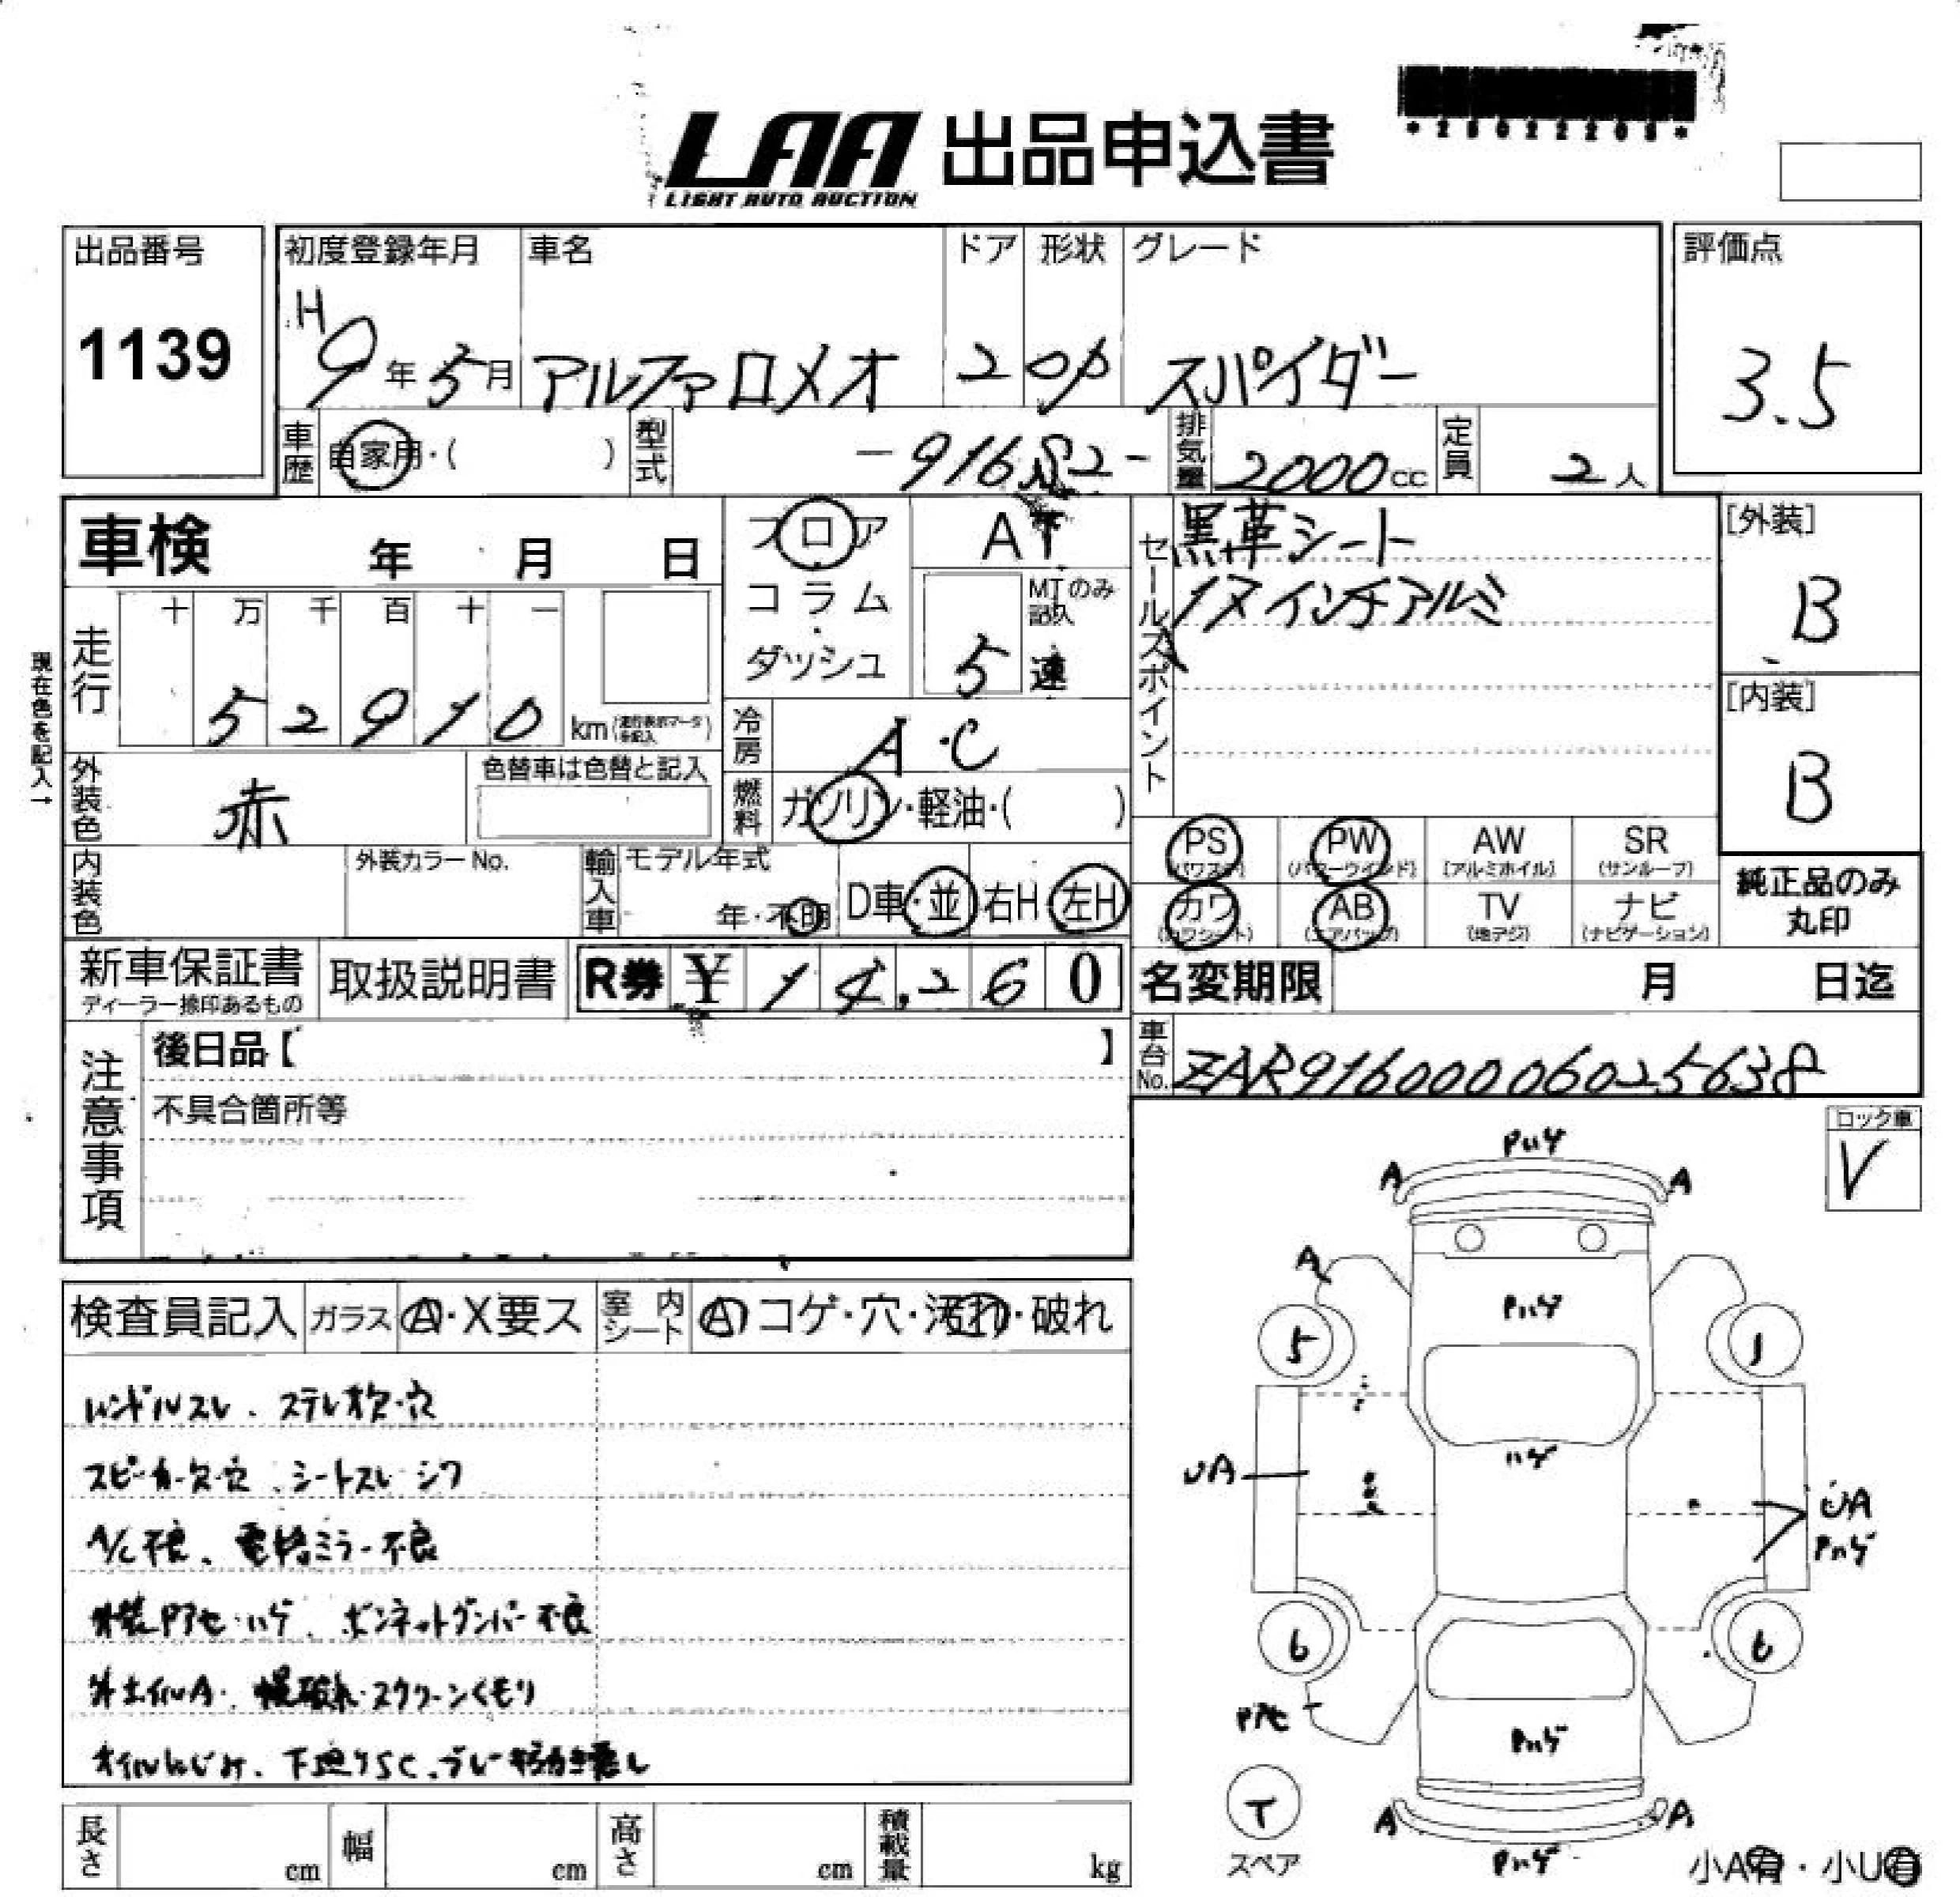 LAA 出品申込書
LIGHT AUTO AUCTION
*25022208*
出品番号
1139
初度登録年月
H9年5月
車名
アルファロメオ
ドア
2
形状
OP
グレード
スパイダー
評価点
3.5
車歴
自家用・( )
型式
-916S2-
排気量
2000cc
定員
2人
車検 年 月 日
フロア
コラム
ダッシュ
AT
MTのみ記入
5速
セールスポイント
黒革シート
17インチアルミ
[外装]
B
[内装]
B
現在色を記入→
走行
十 万 千 百 十 一
5 2 9 1 0 km
冷房
A・C
外装色
赤
色替車は色替と記入
燃料
ガソリン・軽油・( )
内装色
外装カラーNo.
輸入車
モデル年式
年・不明
D車・並
右H・左H
PS (パワステ)
PW (パワーウインド)
AW (アルミホイル)
SR (サンルーフ)
カワ (カワシート)
AB (エアバッグ)
TV (地デジ)
ナビ (ナビゲーション)
純正品のみ
丸印
新車保証書
ディーラー捺印あるもの
取扱説明書
R券 ¥ 14,260
名変期限 月 日迄
車台No.
ZAR91600006025638
注意事項
後日品【 】
不具合箇所等
ロック車
V
検査員記入
ガラス
A・X要ス
室内シート
A コゲ・穴・汚れ・破れ
ハンドルスレ、ステレオ欠・穴
スピーカー欠・穴、シートスレ シワ
A/C不良、電格ミラー不良
外装Pアセ・ハゲ、ボンネットダンパー不良
外ホイルA、幌破れ・スクリーンくもり
オイルにじみ、下廻りSC、
Pハゲ
A
A
A
Pハゲ
5
1
ハゲ
UA
UA
Pハゲ
6
6
Pアセ
Pハゲ
T
スペア
A
A
Pハゲ
小A有・小U有
長さ cm
幅 cm
高さ cm
積載量 kg